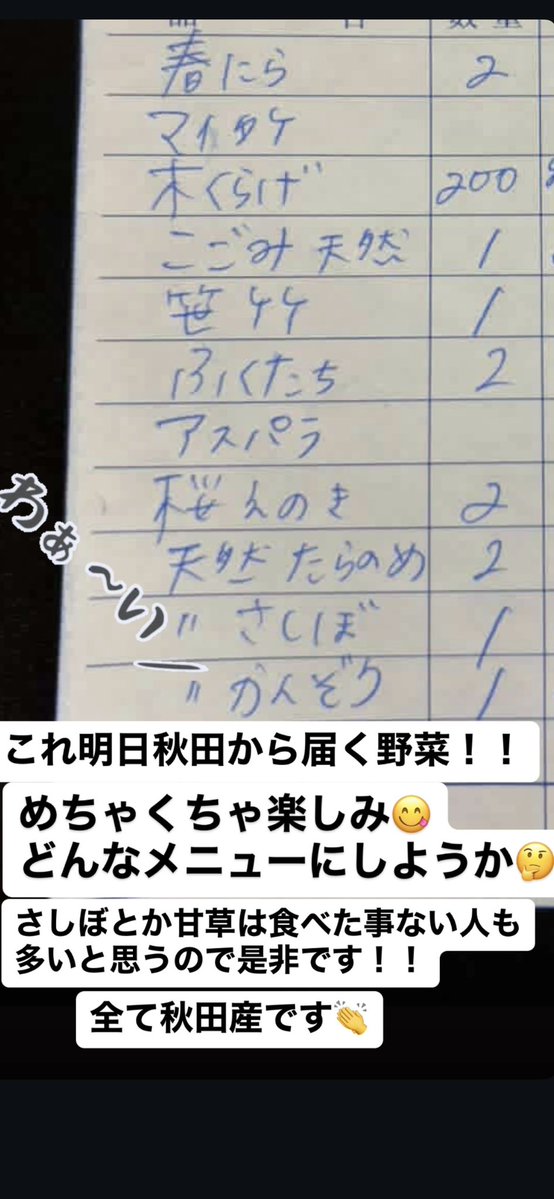 品 名 数量
春にら 2
マイタケ
木くらげ 200
こごみ 天然 1
笹竹 1
ふくたち 2
アスパラ
桜えのき 2
天然 たらのめ 2
〃 さしぼ 1
〃 かんぞう 1
わぁ〜い
これ明日秋田から届く野菜！！
めちゃくちゃ楽しみ😋
どんなメニューにしようか🤔
さしぼとか甘草は食べた事ない人も
多いと思うので是非です！！
全て秋田産です👏